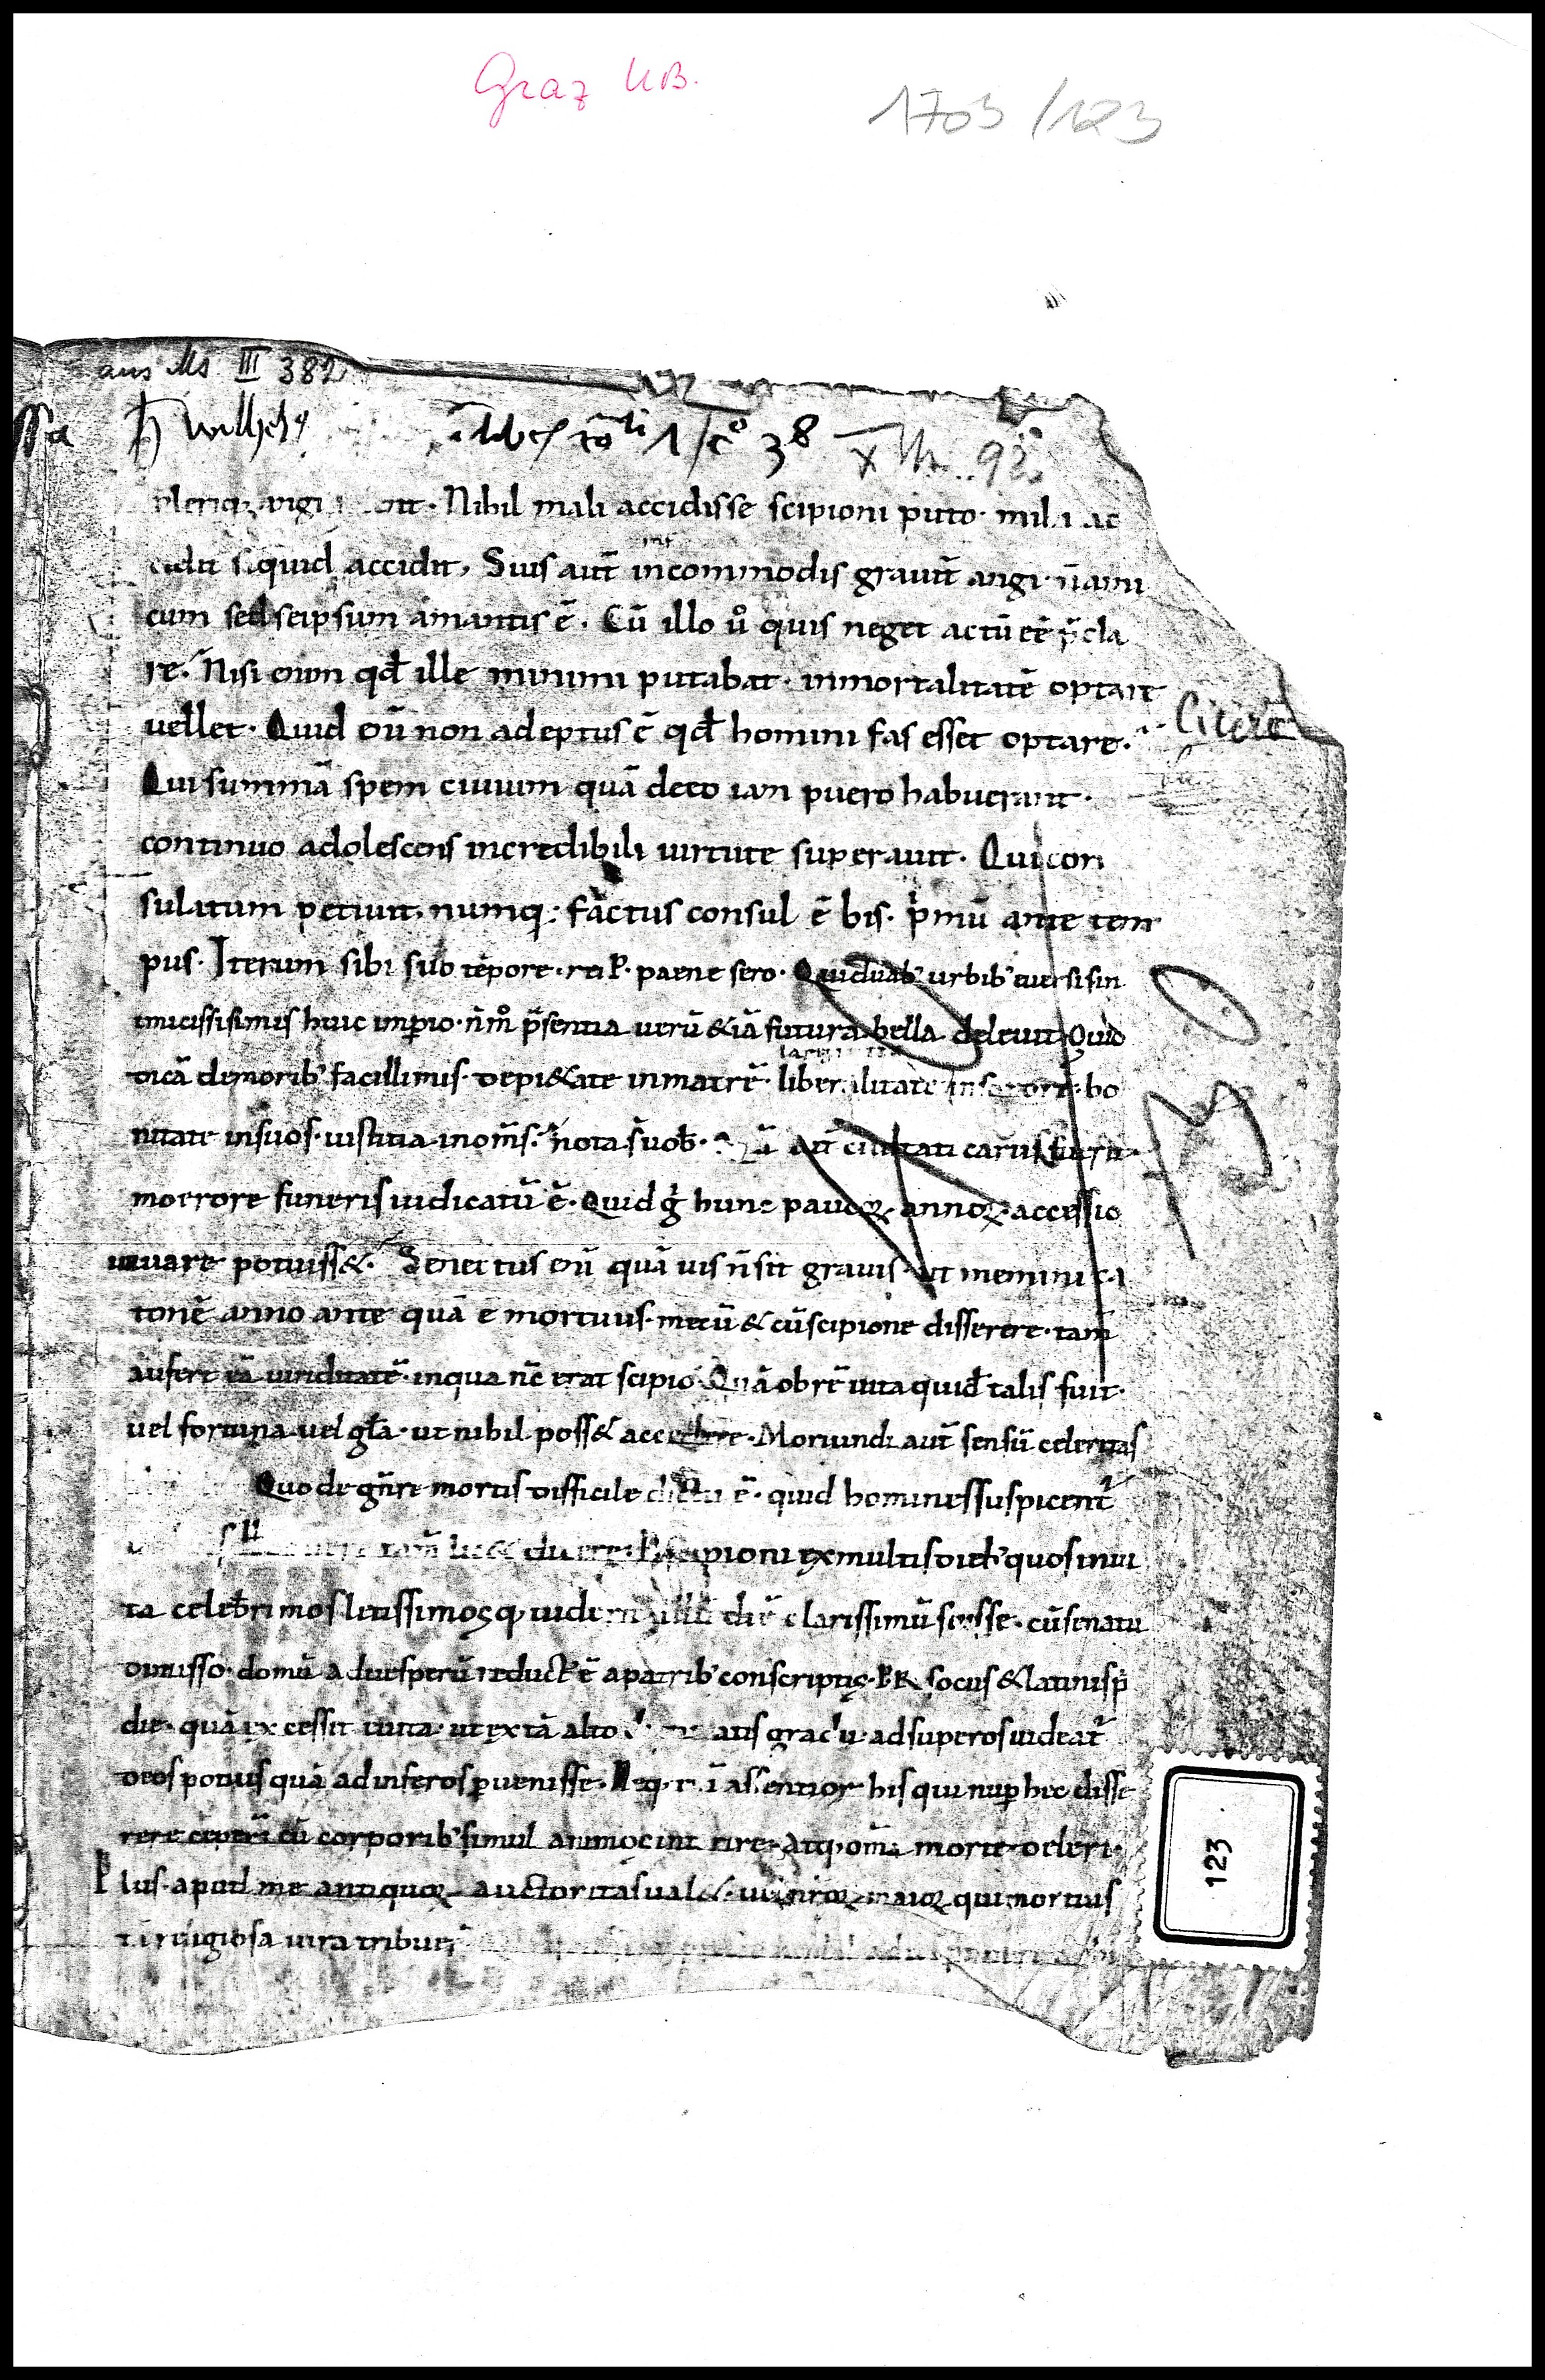 Graz UB.
1703/123
aus Ms III 382
plerique angi Nihil mali accidisse scipioni puto · mihi ac
cidit siquid accidit, Suis aut̄ incommodis grauit̄ angi · n̄ ami
cum sed seipsum amantis ē · Cū illo ů quis neget actū eē p̄cla
re · Nisi enim qđ ille minimi putabat · inmortalitatē optare
uellet · Quid eū non adeptus ē qđ homini fas esset optare ·
Qui summā spem ciuium quā deeo iam puero habuerant ·
continuo adolescens incredibili uirtute superauit · Qui con
sulatum petiuit numq: factus consul ē bis · pͥmū ante tem
pus · Iterum sibi suo tēpore · rei P · paene sero · Qui duab' urbib' euersis in
imicissimis huic imperio · n̄ m̊ p̄sentia uerū & iā futura bella deleuit Quid
dicā demorib' facillimis · de pi&ate inmatrē · liberalitate in sorore · bo
nitate insuos · iustitia inom̄s · nota s̄ uob̄ · aut̄ ciuitati carus fuerit
moerore funeris iudicatū ē · Quid gͥ hunc paucoꝝ annoꝝ accessio
iuuare potuiss& · Senectus eū quā uis n̄ sit grauis · ut memini ca
tonē anno ante quā ē mortuus · mecū & cū scipione disserere · tam̄
aufert eā uiriditatē · inqua n̄c erat scipio · Quā obrē uita quid̄ talis fuit ·
uel fortuna uel gl̄a · ut nihil poss& accedere · Moriundi aut̄ sensū celeritas
Quo de gn̄re mortis difficile dictu ē · quid homines suspicent᷑
tam̄ lic& dicere · P · scipioni ex multis dieb' quos inui
ta celeb̄rimos letissimosq, uiderit illū diē clarissimū fuisse · cū senatu
dimisso · domū aduesperū reduct' ē apatrib' conscriptis · P R sociis & latinis p̄
die · quā excessit uita · ut ex tā alto gradu · adsuperos uideat᷑
deos potius quā ad inferos puenisse · Neq, assentior his qui nup hec disse
rere ceper̄ cū corporib' simul animos int rire · Atq, om̄ia morte deleri ·
Plus apud me antiquoꝝ auctoritas ual& · uel nr̄oꝝ maioꝝ qui mortuis
religiosa iura tribuer̄
123